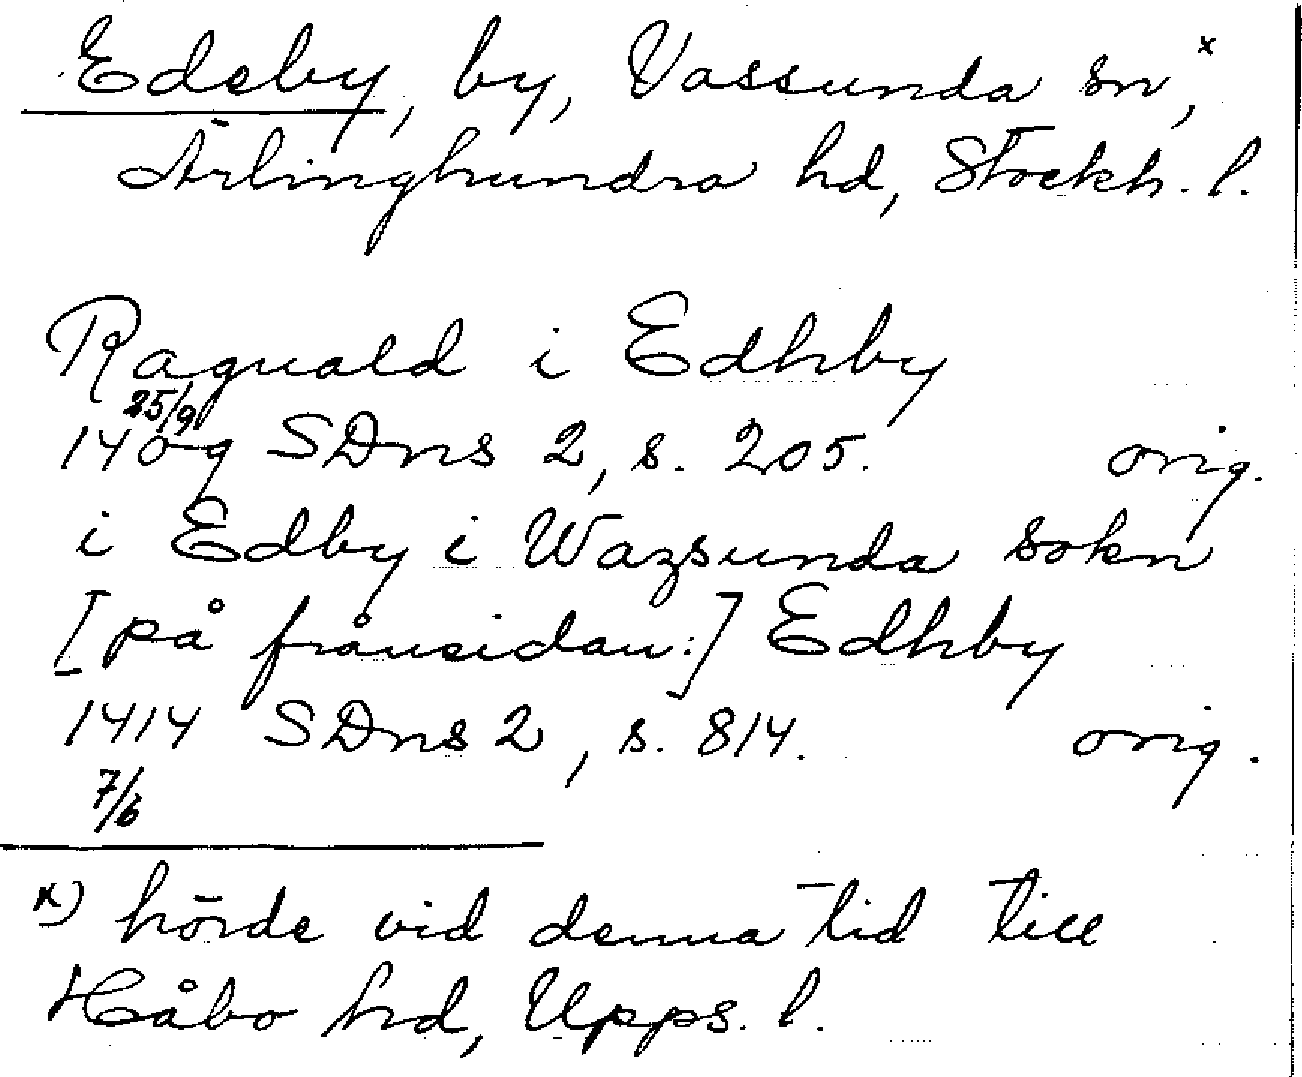 Edeby, by, Vassunda sn,x
Ärlinghundra hd, Stockh. l.
Raguald i Edhby
25/9
1409 SDns 2, s. 205. orig.
i Edby i Wazsunda sokn
[på frånsidan:] Edhby
1414 SDns 2, s. 814. orig.
7/6
x) hörde vid denna tid till
Håbo hd, Upps. l.